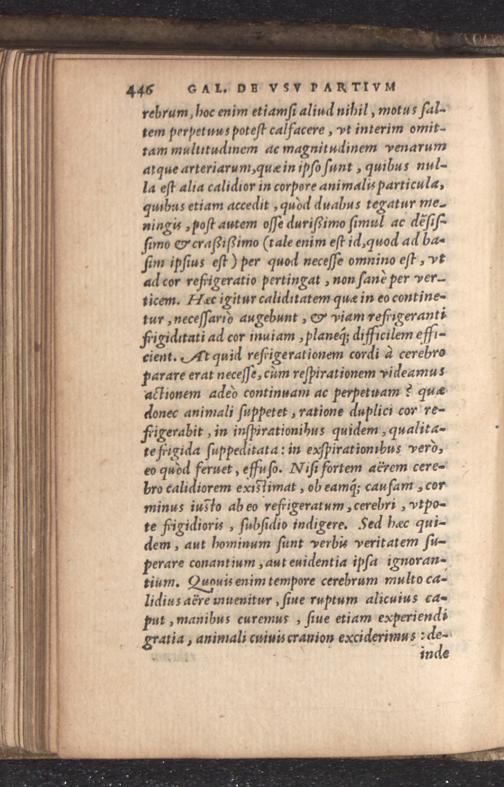 446 GAL. DE VSV PARTIVM
rebrum, hoc enim etiamsi aliud nihil, motus sal-
tem perpetuus potest calfacere, vt interim omit-
tam multitudinem ac magnitudinem venarum
atque arteriarum, quæ in ipso sunt, quibus nul-
la est alia calidior in corpore animalis particula,
quibus etiam accedit, quòd duabus tegatur me-
ningis, post autem osse durißimo simul ac dēsis-
simo & craßißimo (tale enim est id, quod ad ba-
sim ipsius est) per quod necesse omnino est, vt
ad cor refrigeratio pertingat, non sanè per ver-
ticem. Hæc igitur caliditatem quæ in eo contine-
tur, necessariò augebunt, & viam refrigeranti
frigiditati ad cor inuiam, planeq́; difficilem effi-
cient. At quid refrigerationem cordi à cerebro
parare erat necesse, cùm respirationem videamus
actionem adeò continuam ac perpetuam? quæ
donec animali suppetet, ratione duplici cor re-
frigerabit, in inspirationibus quidem, qualita-
te frigida suppeditata: in exspirationibus verò,
eo quod feruet, effuso. Nisi fortem aërem cere-
bro calidiorem existimat, ob eamq́; causam, cor
minus iusto ab eo refrigeratum, cerebri, vtpo-
te frigidioris, subsidio indigere. Sed hæc qui-
dem, aut hominum sunt verbis veritatem su-
perare conantium, aut euidentia ipsa ignoran-
tium. Quouis enim tempore cerebrum multo ca-
lidius aëre inuenitur, siue ruptum alicuius ca-
put, manibus curemus, siue etiam experiendi
gratia, animali cuiuis cranion exciderimus: de-
inde